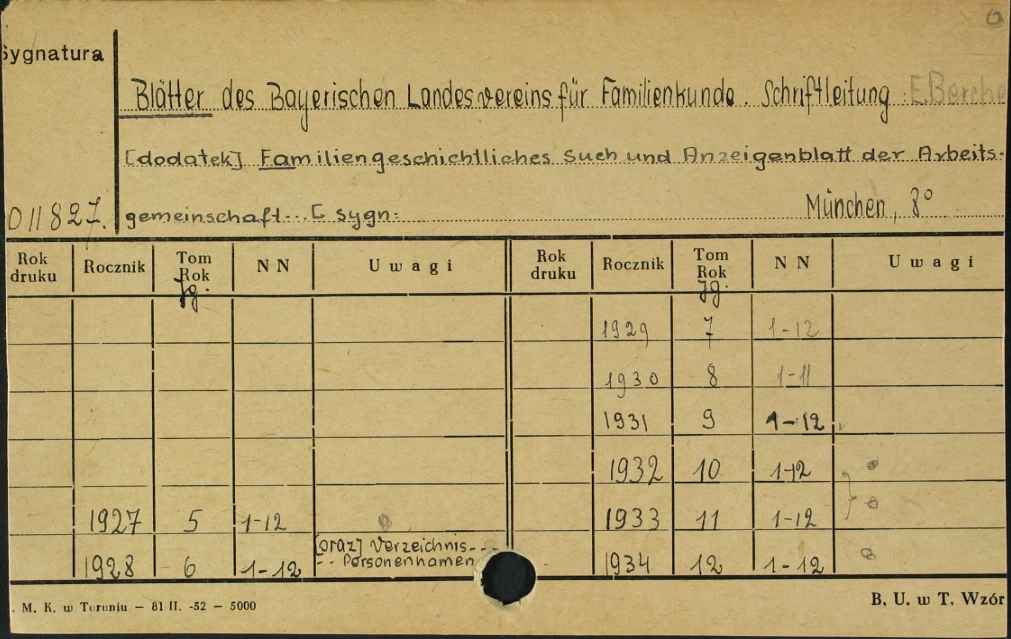 Sygnatura
Blätter des Bayerischen Landesvereins für Familienkunde. Schriftleitung E. Borche
[dodatek] Familiengeschichtliches Such und Anzeigenblatt der Arbeits-
011827. gemeinschaft... [ sygn: München, 8°
Rok druku Rocznik Tom Rok Jg. NN Uwagi Rok druku Rocznik Tom Rok Jg. NN Uwagi
1929 7 1-12
1930 8 1-11
1931 9 1-12
1932 10 1-12
1927 5 1-12 1933 11 1-12
1928 6 1-12 [oraz] Verzeichnis--- -- Personennamen 1934 12 1-12
. M. K. w Toruniu — 81 II. -52 — 5000 B. U. w T. Wzór